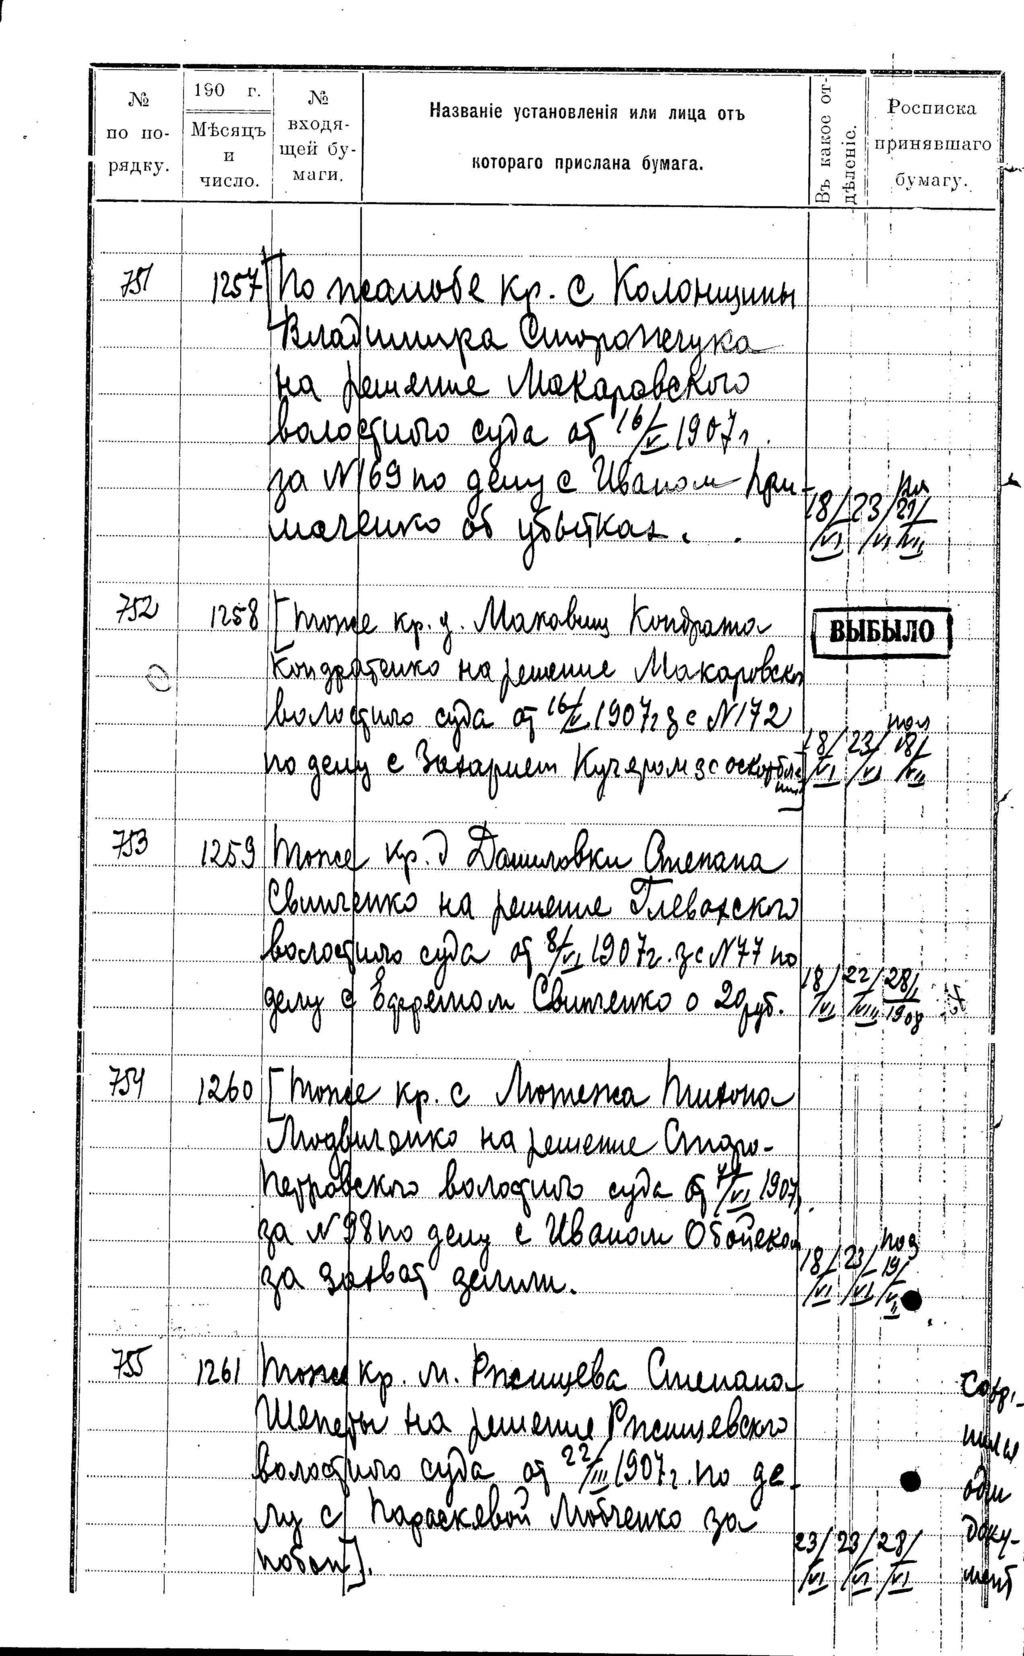 № по по-рядку.
190 г. Мѣсяцъ и число.
№ входя-щей бу-маги.
Названіе установленія или лица отъ
котораго прислана бумага.
Въ какое от-дѣленіе.
Росписка принявшаго бумагу.
751 1257 [По жалобе кр. с Колонщины
Владимира Сторожчука
на решение Макаровского
волостного суда от 16/V 1907 г.
за N 169 по делу с Иваном При-
маченко об убытках.
18/VI 23/VI 21/VII
752 1258 [Тоже кр. д. Маковищ Кондрата
Кондратенко на решение Макаровско
волостного суда от 16/V 1907 г за N 172
по делу с Захарием Кучером за оскорбле
ние]
ВЫБЫЛО
18/VI 23/VI 18/VII
753 1259 Тоже кр. д Даниловки Степана
Свинченко на решение Глевахского
волостного суда от 8/VI 1907г. за N 77 по
делу с Ефремом Свинченко о 20 руб.
18/VI 22/VIII 28/I 1908
754 1260 [Тоже кр. с Мотежа Тихона
на решение Старо-
Петровского волостного суда от 1907
за N 98 по делу с Иваном
за захват земли.
18/VI 23/VI 19/VII
755 1261 Тоже кр. м. Ржищева Степана
Шепеты на решение Ржищевского
волостного суда от 22/III 1907 г. по де-
лу с Параскевой Любченко за
побои].
23/VI 23/VI 28/VI
один
доку-
мент